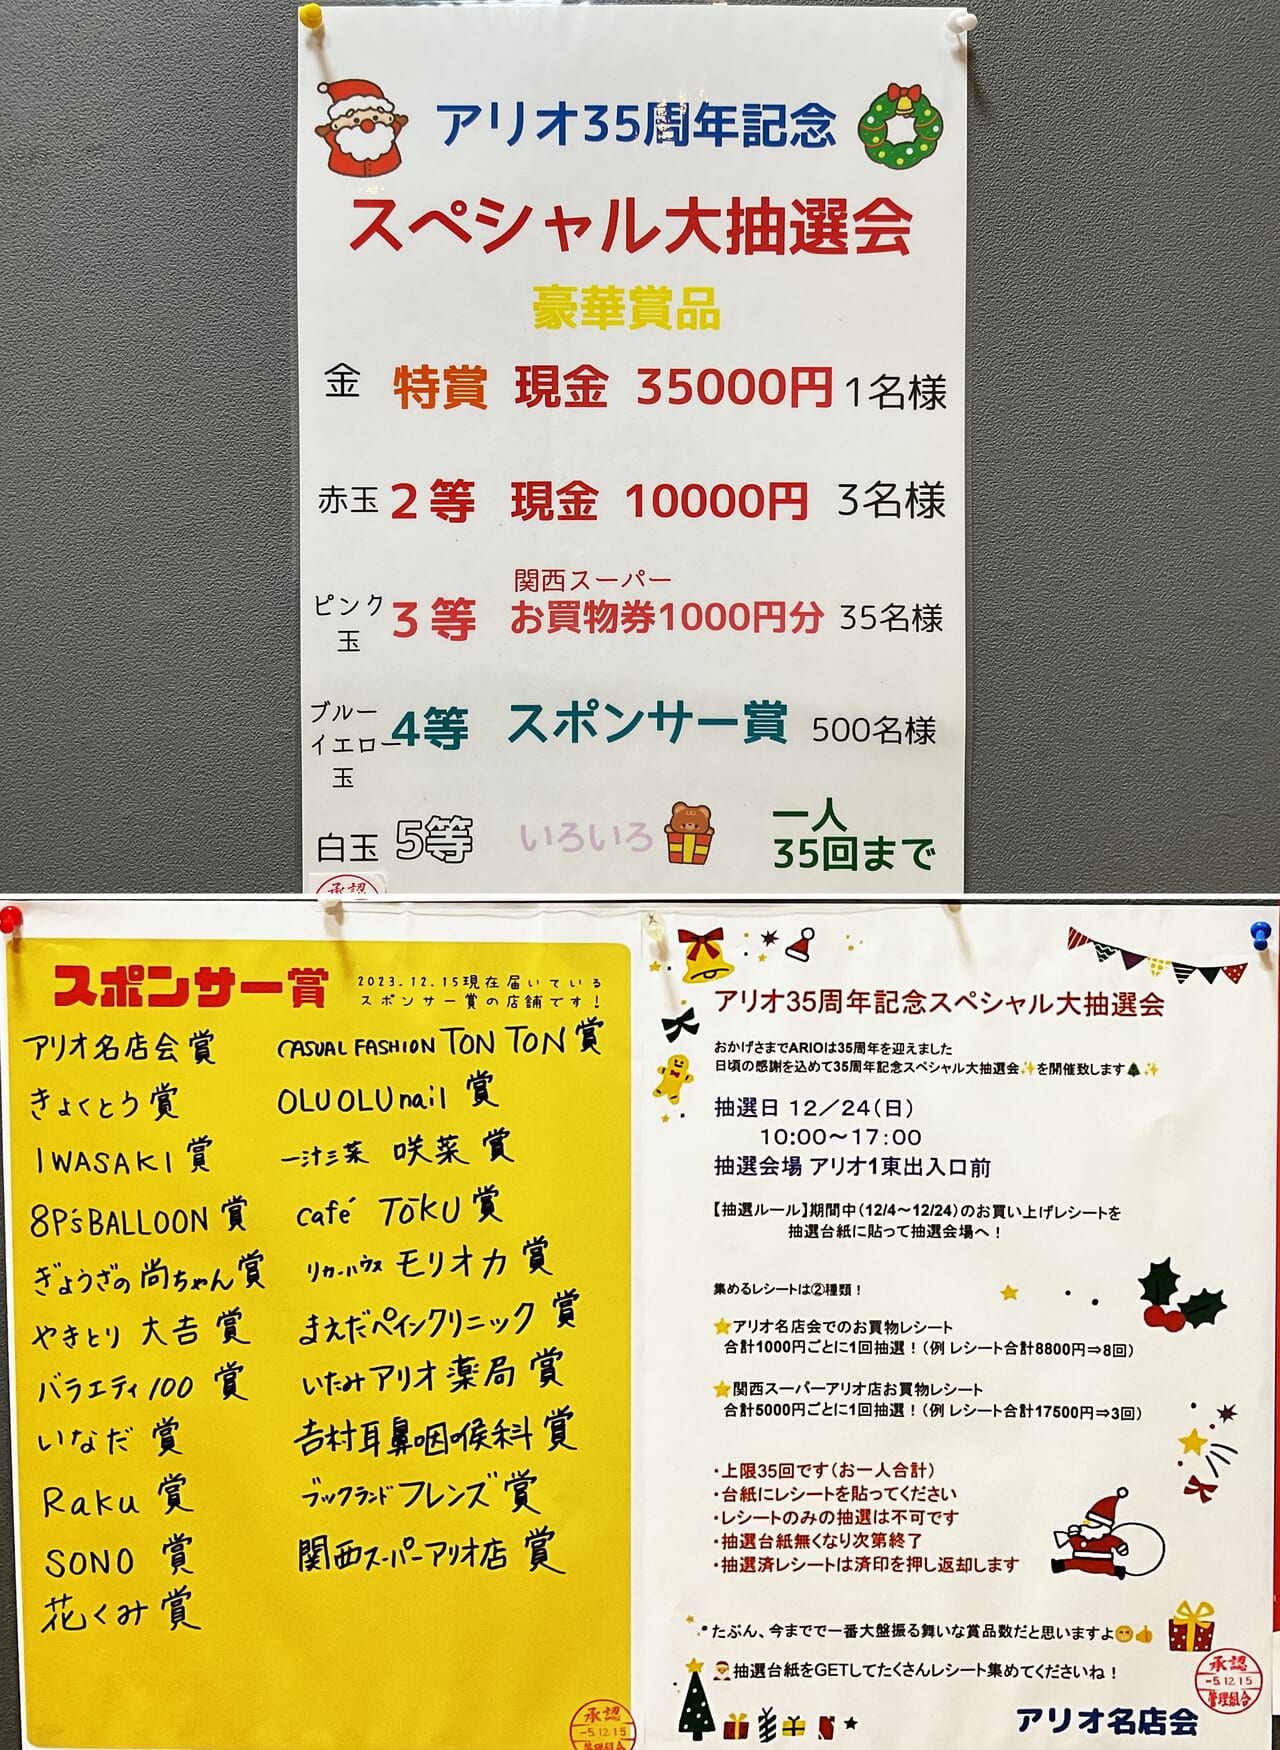 アリオ35周年記念
スペシャル大抽選会
豪華賞品
金 特賞 現金 35000円 1名様
赤玉 2等 現金 10000円 3名様
関西スーパー
ピンク玉 3等 お買物券1000円分 35名様
ブルーイエロー玉 4等 スポンサー賞 500名様
白玉 5等 いろいろ 一人
35回まで
承認
スポンサー賞
2023.12.15現在届いている
スポンサー賞の店舗です!
アリオ名店会賞
きょくとう賞
IWASAKI賞
8P'sBALLOON賞
ぎょうざの尚ちゃん賞
やきとり 大吉 賞
バラエティ100 賞
いなだ 賞
Raku 賞
SONO 賞
花くみ賞
CASUAL FASHION TON TON賞
OLUOLUnail 賞
一汁三菜 咲菜 賞
café TōKU賞
リカーハウス モリオカ賞
まえだペインクリニック賞
いたみアリオ薬局賞
吉村耳鼻咽喉科賞
ブックランドフレンズ賞
関西スーパーアリオ店 賞
承認
-5.12.15
管理組合
アリオ35周年記念スペシャル大抽選会
おかげさまでARIOは35周年を迎えました
日頃の感謝を込めて35周年記念スペシャル大抽選会✨を開催致します🎄✨
抽選日 12/24(日)
10:00～17:00
抽選会場 アリオ1東出入口前
【抽選ルール】期間中(12/4～12/24)のお買い上げレシートを
抽選台紙に貼って抽選会場へ!
集めるレシートは②種類!
⭐アリオ名店会でのお買物レシート
合計1000円ごとに1回抽選!(例 レシート合計8800円⇒8回)
⭐関西スーパーアリオ店お買物レシート
合計5000円ごとに1回抽選!(例 レシート合計17500円⇒3回)
・上限35回です(お一人合計)
・台紙にレシートを貼ってください
・レシートのみの抽選は不可です
・抽選台紙無くなり次第終了
・抽選済レシートは済印を押し返却します
たぶん、今までで一番大盤振る舞いな賞品数だと思いますよ😁👍
🎅抽選台紙をGETしてたくさんレシート集めてくださいね!
承認
-5.12.15
管理組合
アリオ名店会